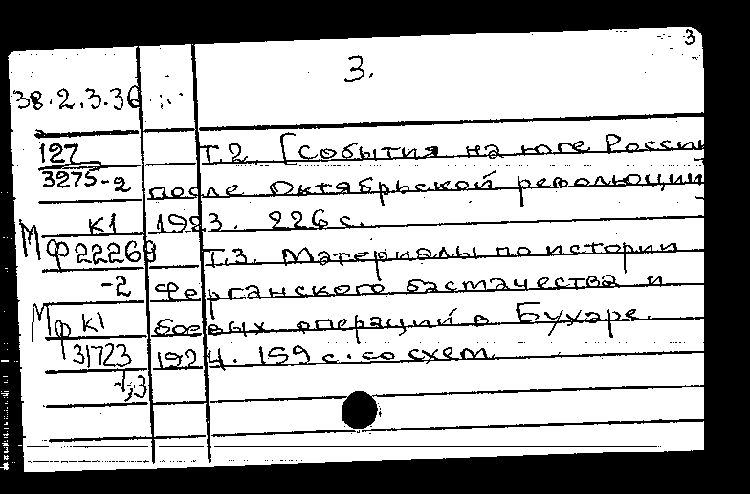 3
3.
38.2.3.36
127
3275-2
Т.2. [События на юге России
после Октябрьской революции]
К1 1923. 226 с.
Мф 22268
-2
Т.3. Материалы по истории
Ферганского басмачества и
боевых операций в Бухаре.
1924. 159 с. со схем.
Мф К1
31723